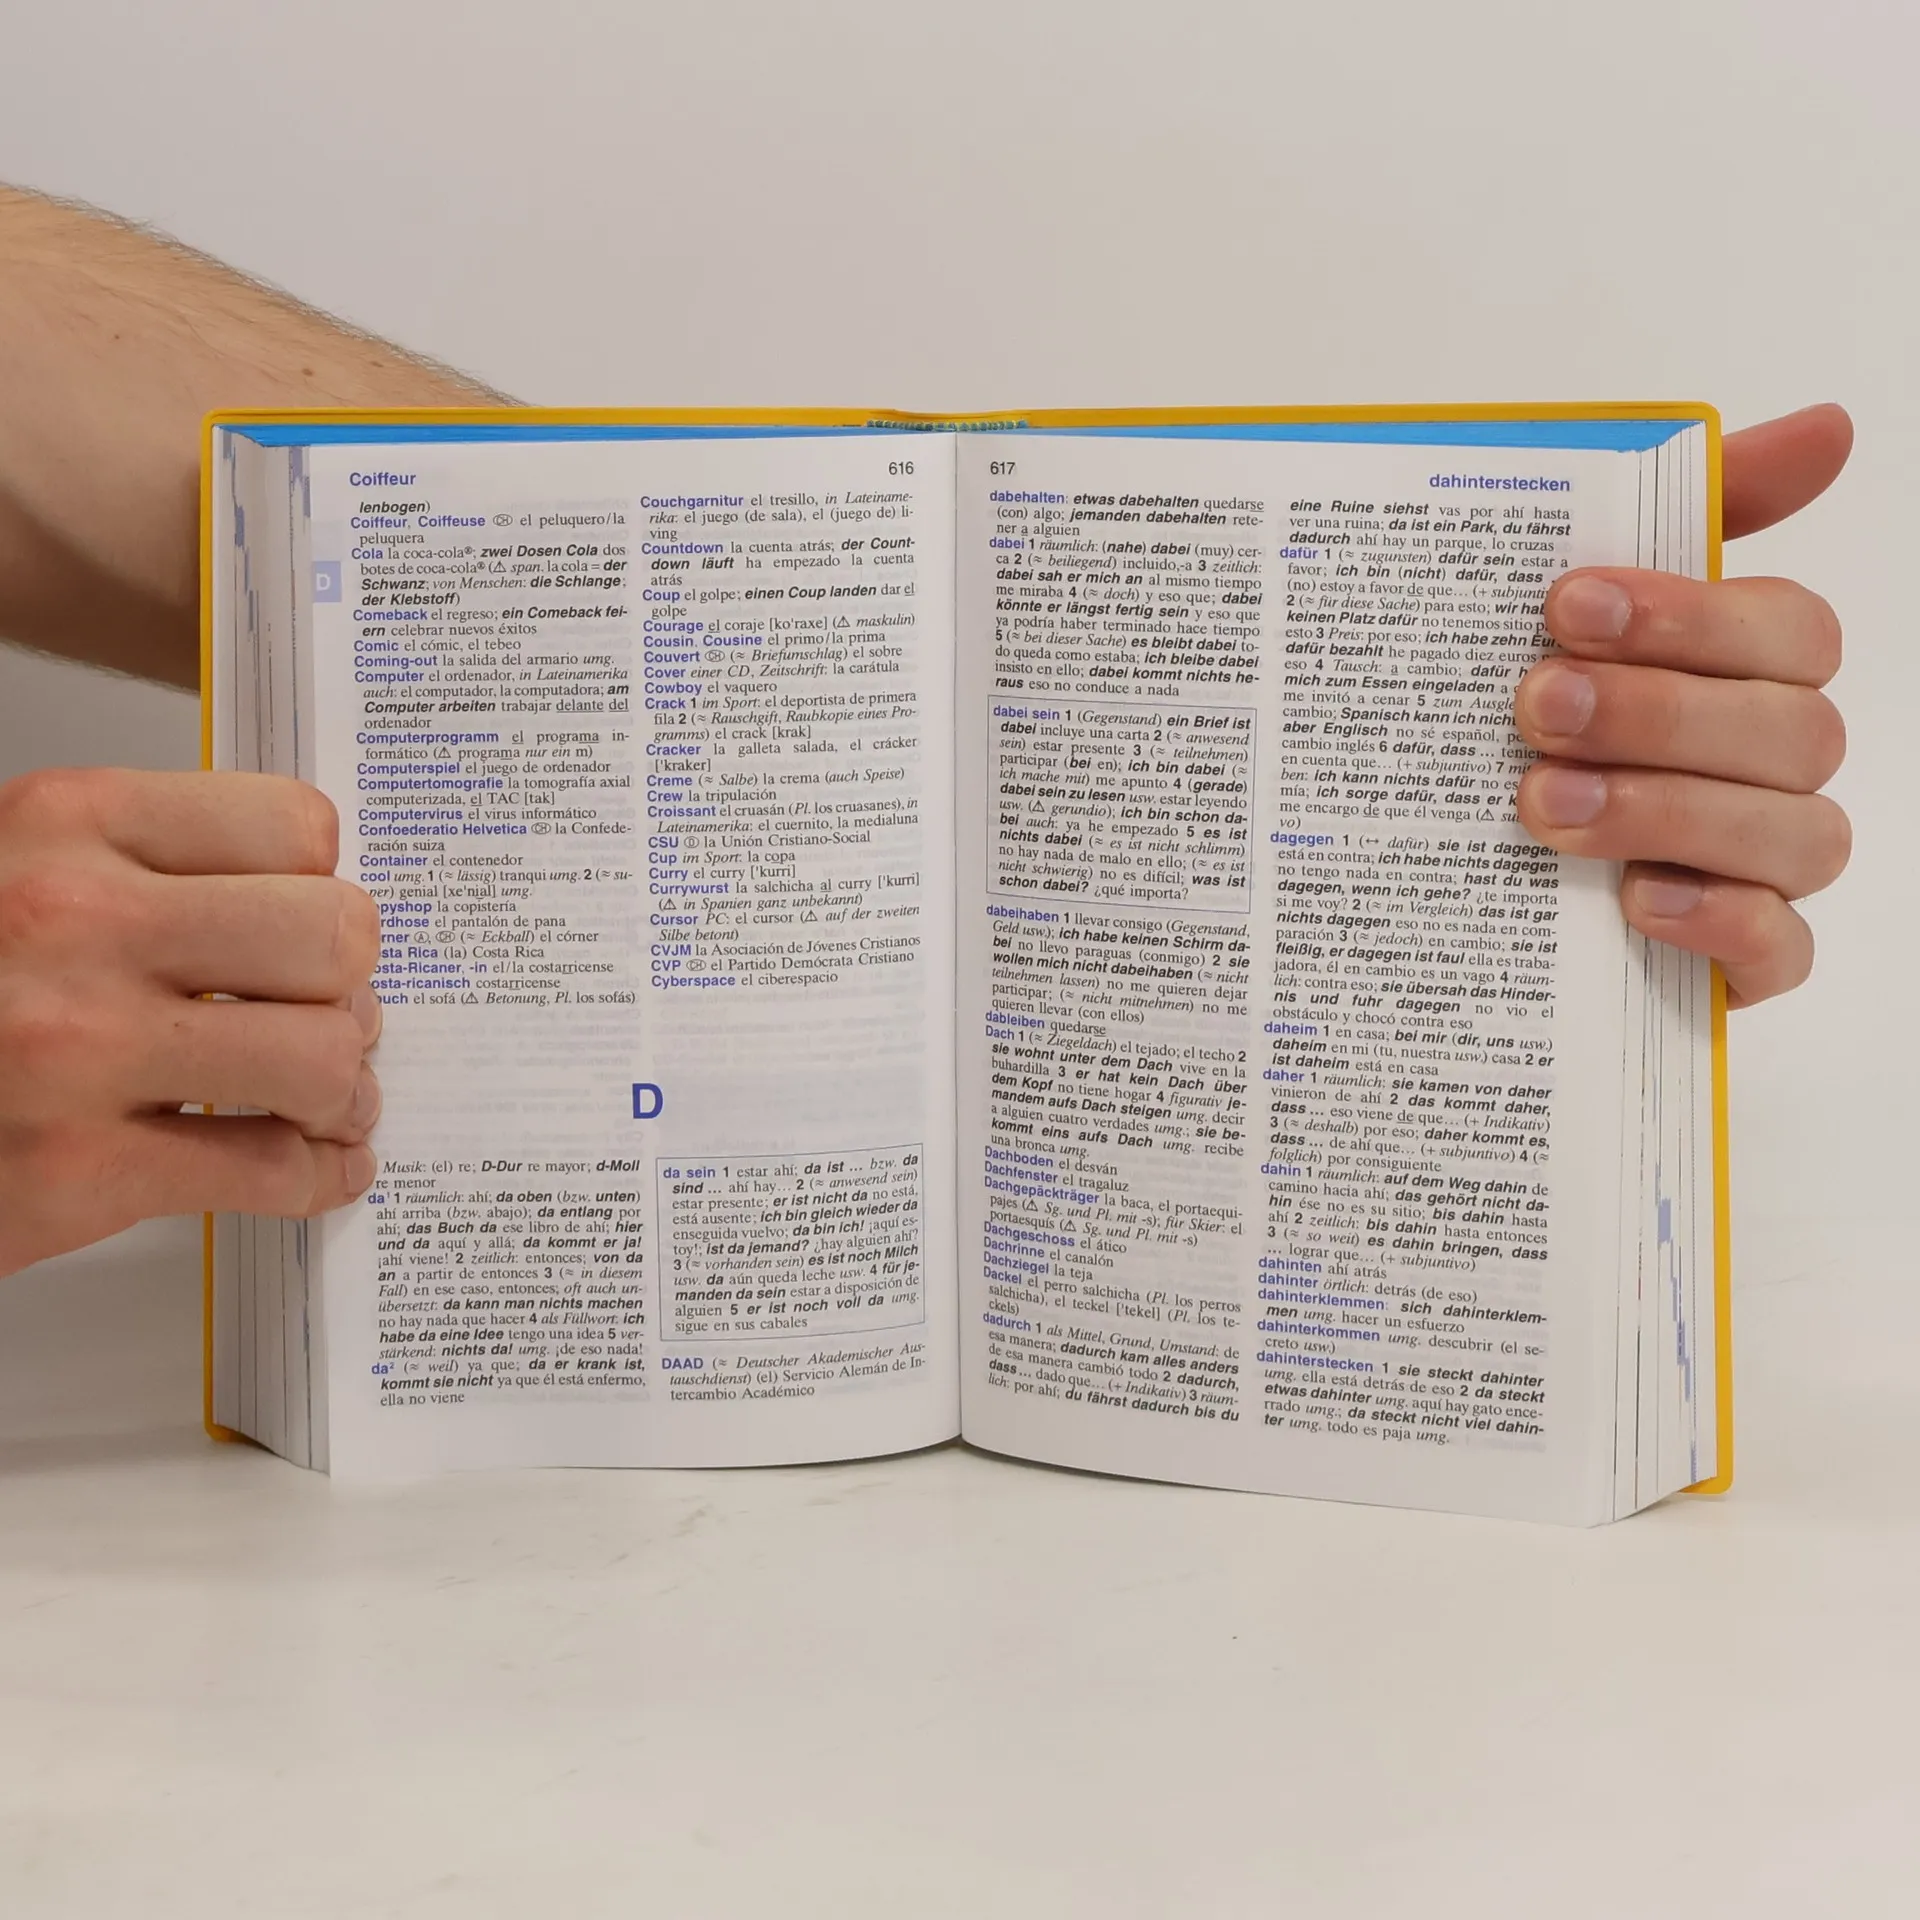 Coiffeur
616
D
lenbogen)
Coiffeur, Coiffeuse CH el peluquero/la
peluquera
Cola la coca-cola®; zwei Dosen Cola dos
botes de coca-cola® (⚠ span. la cola = der
Schwanz; von Menschen: die Schlange;
der Klebstoff)
Comeback el regreso; ein Comeback fei-
ern celebrar nuevos éxitos
Comic el cómic, el tebeo
Coming-out la salida del armario umg.
Computer el ordenador, in Lateinamerika
auch: el computador, la computadora; am
Computer arbeiten trabajar delante del
ordenador
Computerprogramm el programa in-
formático (⚠ programa nur ein m)
Computerspiel el juego de ordenador
Computertomografie la tomografía axial
computerizada, el TAC [tak]
Computervirus el virus informático
Confoederatio Helvetica CH la Confede-
ración suiza
Container el contenedor
cool umg. 1 (≈ lässig) tranqui umg. 2 (≈ su-
per) genial [xe'nial] umg.
pyshop la copistería
rdhose el pantalón de pana
rner A, CH (≈ Eckball) el córner
sta Rica (la) Costa Rica
osta-Ricaner, -in el/la costarricense
osta-ricanisch costarricense
ouch el sofá (⚠ Betonung, Pl. los sofás)
Couchgarnitur el tresillo, in Lateiname-
rika: el juego (de sala), el (juego de) li-
ving
Countdown la cuenta atrás; der Count-
down läuft ha empezado la cuenta
atrás
Coup el golpe; einen Coup landen dar el
golpe
Courage el coraje [ko'raxe] (⚠ maskulin)
Cousin, Cousine el primo/la prima
Couvert CH (≈ Briefumschlag) el sobre
Cover einer CD, Zeitschrift: la carátula
Cowboy el vaquero
Crack 1 im Sport: el deportista de primera
fila 2 (≈ Rauschgift, Raubkopie eines Pro-
gramms) el crack [krak]
Cracker la galleta salada, el crácker
['kraker]
Creme (≈ Salbe) la crema (auch Speise)
Crew la tripulación
Croissant el cruasán (Pl. los cruasanes), in
Lateinamerika: el cuernito, la medialuna
CSU D la Unión Cristiano-Social
Cup im Sport: la copa
Curry el curry ['kurri]
Currywurst la salchicha al curry ['kurri]
(⚠ in Spanien ganz unbekannt)
Cursor PC: el cursor (⚠ auf der zweiten
Silbe betont)
CVJM la Asociación de Jóvenes Cristianos
CVP CH el Partido Demócrata Cristiano
Cyberspace el ciberespacio
D
Musik: (el) re; D-Dur re mayor; d-Moll
re menor
da¹ 1 räumlich: ahí; da oben (bzw. unten)
ahí arriba (bzw. abajo); da entlang por
ahí; das Buch da ese libro de ahí; hier
und da aquí y allá; da kommt er ja!
¡ahí viene! 2 zeitlich: entonces; von da
an a partir de entonces 3 (≈ in diesem
Fall) en ese caso, entonces; oft auch un-
übersetzt: da kann man nichts machen
no hay nada que hacer 4 als Füllwort: ich
habe da eine Idee tengo una idea 5 ver-
stärkend: nichts da! umg. ¡de eso nada!
da² (≈ weil) ya que; da er krank ist,
kommt sie nicht ya que él está enfermo,
ella no viene
da sein 1 estar ahí; da ist ... bzw. da
sind ... ahí hay... 2 (≈ anwesend sein)
estar presente; er ist nicht da no está,
está ausente; ich bin gleich wieder da
enseguida vuelvo; da bin ich! ¡aquí es-
toy!; ist da jemand? ¿hay alguien ahí?
3 (≈ vorhanden sein) es ist noch Milch
usw. da aún queda leche usw. 4 für je-
manden da sein estar a disposición de
alguien 5 er ist noch voll da umg.
sigue en sus cabales
DAAD (≈ Deutscher Akademischer Aus-
tauschdienst) (el) Servicio Alemán de In-
tercambio Académico
617
dahinterstecken
dabehalten: etwas dabehalten quedarse
(con) algo; jemanden dabehalten rete-
ner a alguien
dabei 1 räumlich: (nahe) dabei (muy) cer-
ca 2 (≈ beiliegend) incluido,-a 3 zeitlich:
dabei sah er mich an al mismo tiempo
me miraba 4 (≈ doch) y eso que; dabei
könnte er längst fertig sein y eso que
ya podría haber terminado hace tiempo
5 (≈ bei dieser Sache) es bleibt dabei to-
do queda como estaba; ich bleibe dabei
insisto en ello; dabei kommt nichts he-
raus eso no conduce a nada
dabei sein 1 (Gegenstand) ein Brief ist
dabei incluye una carta 2 (≈ anwesend
sein) estar presente 3 (≈ teilnehmen)
participar (bei en); ich bin dabei (≈
ich mache mit) me apunto 4 (gerade)
dabei sein zu lesen usw. estar leyendo
usw. (⚠ gerundio); ich bin schon da-
bei auch: ya he empezado 5 es ist
nichts dabei (≈ es ist nicht schlimm)
no hay nada de malo en ello; (≈ es ist
nicht schwierig) no es difícil; was ist
schon dabei? ¿qué importa?
dabeihaben 1 llevar consigo (Gegenstand,
Geld usw.); ich habe keinen Schirm da-
bei no llevo paraguas (conmigo) 2 sie
wollen mich nicht dabeihaben (≈ nicht
teilnehmen lassen) no me quieren dejar
participar; (≈ nicht mitnehmen) no me
quieren llevar (con ellos)
dableiben quedarse
Dach 1 (≈ Ziegeldach) el tejado; el techo 2
sie wohnt unter dem Dach vive en la
buhardilla 3 er hat kein Dach über
dem Kopf no tiene hogar 4 figurativ je-
mandem aufs Dach steigen umg. decir
a alguien cuatro verdades umg.; sie be-
kommt eins aufs Dach umg. recibe
una bronca umg.
Dachboden el desván
Dachfenster el tragaluz
Dachgepäckträger la baca, el portaequi-
pajes (⚠ Sg. und Pl. mit -s); für Skier: el
portaesquís (⚠ Sg. und Pl. mit -s)
Dachgeschoss el ático
Dachrinne el canalón
Dachziegel la teja
Dackel el perro salchicha (Pl. los perros
salchicha), el teckel ['tekel] (Pl. los te-
ckels)
dadurch 1 als Mittel, Grund, Umstand: de
esa manera; dadurch kam alles anders
de esa manera cambió todo 2 dadurch,
dass ... dado que... (+ Indikativ) 3 räum-
lich: por ahí; du fährst dadurch bis du
eine Ruine siehst vas por ahí hasta
ver una ruina; da ist ein Park, du fährst
dadurch ahí hay un parque, lo cruzas
dafür 1 (≈ zugunsten) dafür sein estar a
favor; ich bin (nicht) dafür, dass
(no) estoy a favor de que... (+ subjunti
2 (≈ für diese Sache) para esto; wir hab
keinen Platz dafür no tenemos sitio p
esto 3 Preis: por eso; ich habe zehn Eur
dafür bezahlt he pagado diez euros
eso 4 Tausch: a cambio; dafür h
mich zum Essen eingeladen a
me invitó a cenar 5 zum Ausgle
cambio; Spanisch kann ich nich
aber Englisch no sé español, p
cambio inglés 6 dafür, dass ... tenien
en cuenta que... (+ subjuntivo) 7 mi
ben: ich kann nichts dafür no es
mía; ich sorge dafür, dass er k
me encargo de que él venga (⚠ su
vo)
dagegen 1 (↔ dafür) sie ist dagegen
está en contra; ich habe nichts dagegen
no tengo nada en contra; hast du was
dagegen, wenn ich gehe? ¿te importa
si me voy? 2 (≈ im Vergleich) das ist gar
nichts dagegen eso no es nada en com-
paración 3 (≈ jedoch) en cambio; sie ist
fleißig, er dagegen ist faul ella es traba-
jadora, él en cambio es un vago 4 räum-
lich: contra eso; sie übersah das Hinder-
nis und fuhr dagegen no vio el
obstáculo y chocó contra eso
daheim 1 en casa; bei mir (dir, uns usw.)
daheim en mi (tu, nuestra usw.) casa 2 er
ist daheim está en casa
daher 1 räumlich: sie kamen von daher
vinieron de ahí 2 das kommt daher,
dass ... eso viene de que... (+ Indikativ)
3 (≈ deshalb) por eso; daher kommt es,
dass ... de ahí que... (+ subjuntivo) 4 (≈
folglich) por consiguiente
dahin 1 räumlich: auf dem Weg dahin de
camino hacia ahí; das gehört nicht da-
hin ése no es su sitio; bis dahin hasta
ahí 2 zeitlich: bis dahin hasta entonces
3 (≈ so weit) es dahin bringen, dass
... lograr que... (+ subjuntivo)
dahinten ahí atrás
dahinter örtlich: detrás (de eso)
dahinterklemmen: sich dahinterklem-
men umg. hacer un esfuerzo
dahinterkommen umg. descubrir (el se-
creto usw.)
dahinterstecken 1 sie steckt dahinter
umg. ella está detrás de eso 2 da steckt
etwas dahinter umg. aquí hay gato ence-
rrado umg.; da steckt nicht viel dahin-
ter umg. todo es paja umg.